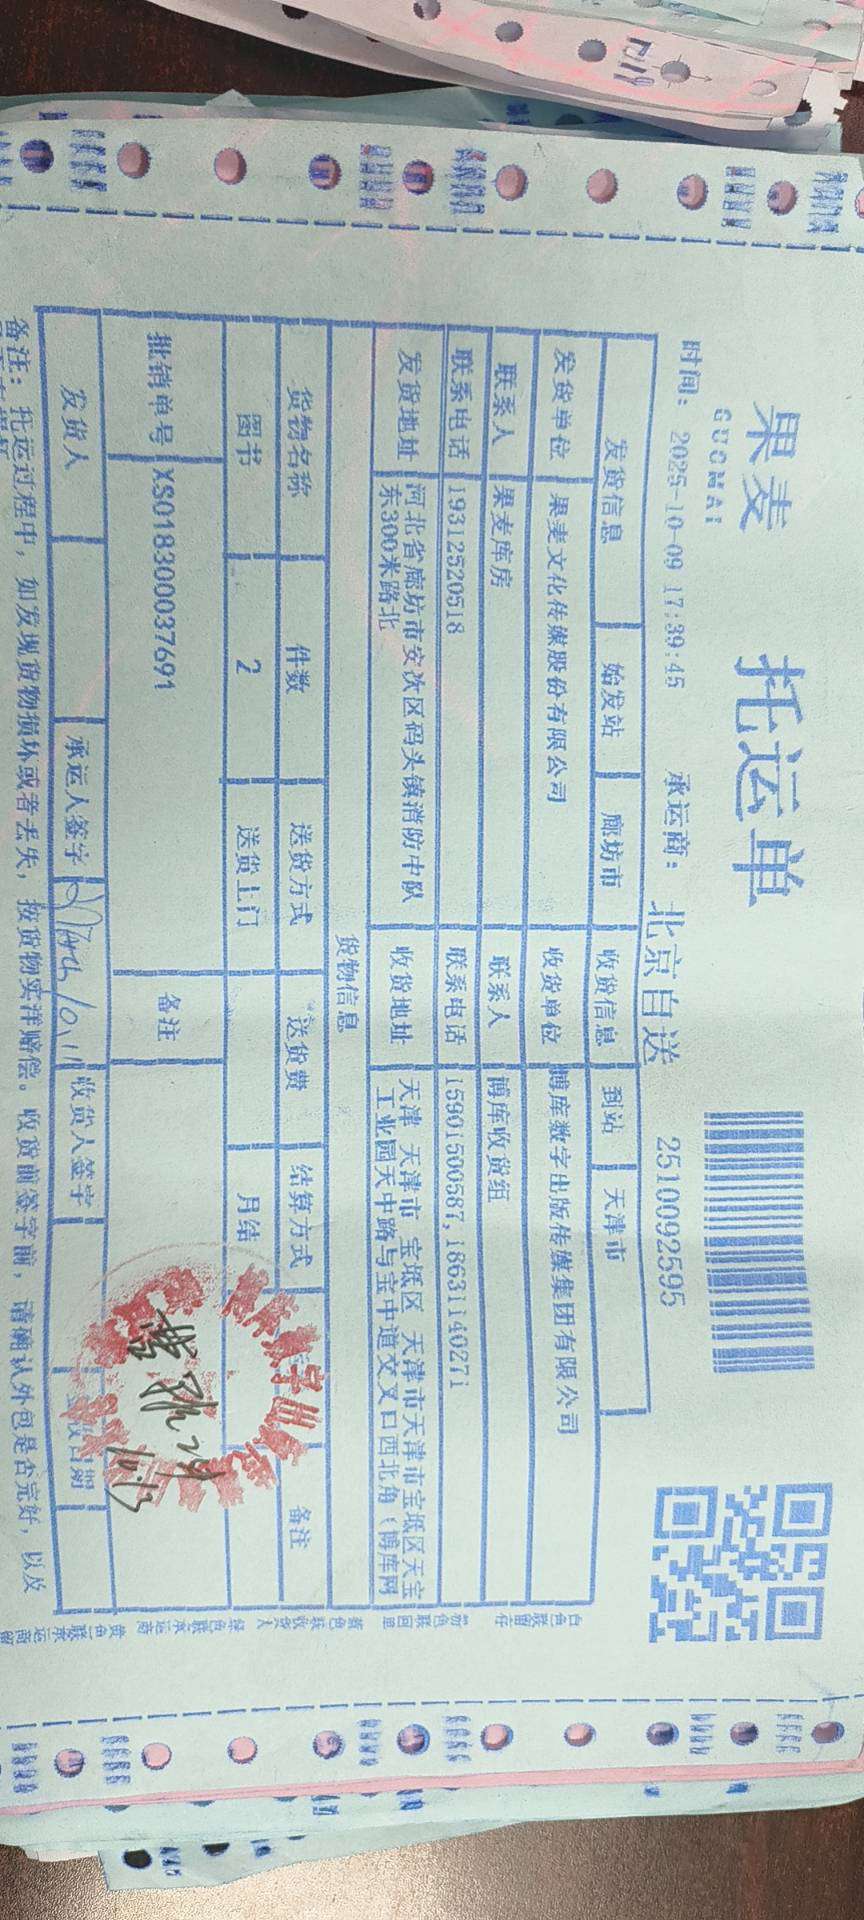 果麦
GUOMAI
托运单
时间： 2025-10-09 17:39:45 承运商： 北京自送 2510092595
发货信息 始发站 廊坊市 收货信息 到站 天津市
发货单位 果麦文化传媒股份有限公司 收货单位 博库数字出版传媒集团有限公司
联系人 果麦库房 联系人 博库收货组
联系电话 19312520518 联系电话 15901500587,18631140271
发货地址 河北省廊坊市安次区码头镇消防中队东300米路北 收货地址 天津 天津市 宝坻区 天津市天津市宝坻区天宝工业园天中路与宝中道交叉口西北角（博库网
货物信息
货物名称 件数 送货方式 送货费 结算方式 备注
图书 2 送货上门 月结
批销单号 XS018300037691 备注
发货人 承运人签字 收货人签字 日期
备注：托运过程中，如发现货物损坏或者丢失，按货物实洋赔偿。收货前签字前，请确认外包是否完好，以及